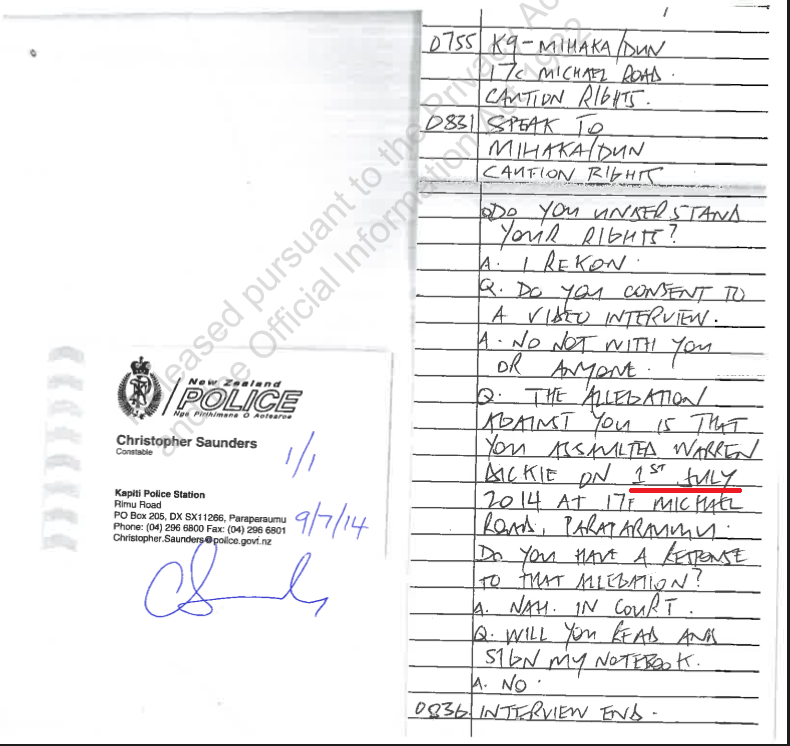 Released pursuant to the Privacy Act
and the Official Information Act 1982
New Zealand
POLICE
Nga Pirihimana O Aotearoa
Christopher Saunders
Constable
1/1
Kapiti Police Station
Rimu Road
PO Box 205, DX SX11266, Paraparaumu
Phone: (04) 296 6800 Fax: (04) 296 6801
Christopher.Saunders@police.govt.nz
9/7/14
0755 K9-MIHAKA/DUN
17C MICHAEL ROAD.
CAUTION RIGHTS.
0831 SPEAK TO
MIHAKA/DUN
CAUTION RIGHTS
Q DO YOU UNDERSTAND
YOUR RIGHTS?
A. I REKON.
Q. DO YOU CONSENT TO
A VIDEO INTERVIEW.
A. NO NOT WITH YOU
OR ANYONE.
Q. THE ALLEGATION
AGAINST YOU IS THAT
YOU ASSAULTED WARREN
DICKIE ON 1ST JULY
2014 AT 17F MICHAEL
ROAD, PARAPARAUMU.
DO YOU HAVE A RESPONSE
TO THAT ALLEGATION?
A. NAH. IN COURT.
Q. WILL YOU READ AND
SIGN MY NOTEBOOK.
A. NO.
0836 INTERVIEW ENDS.